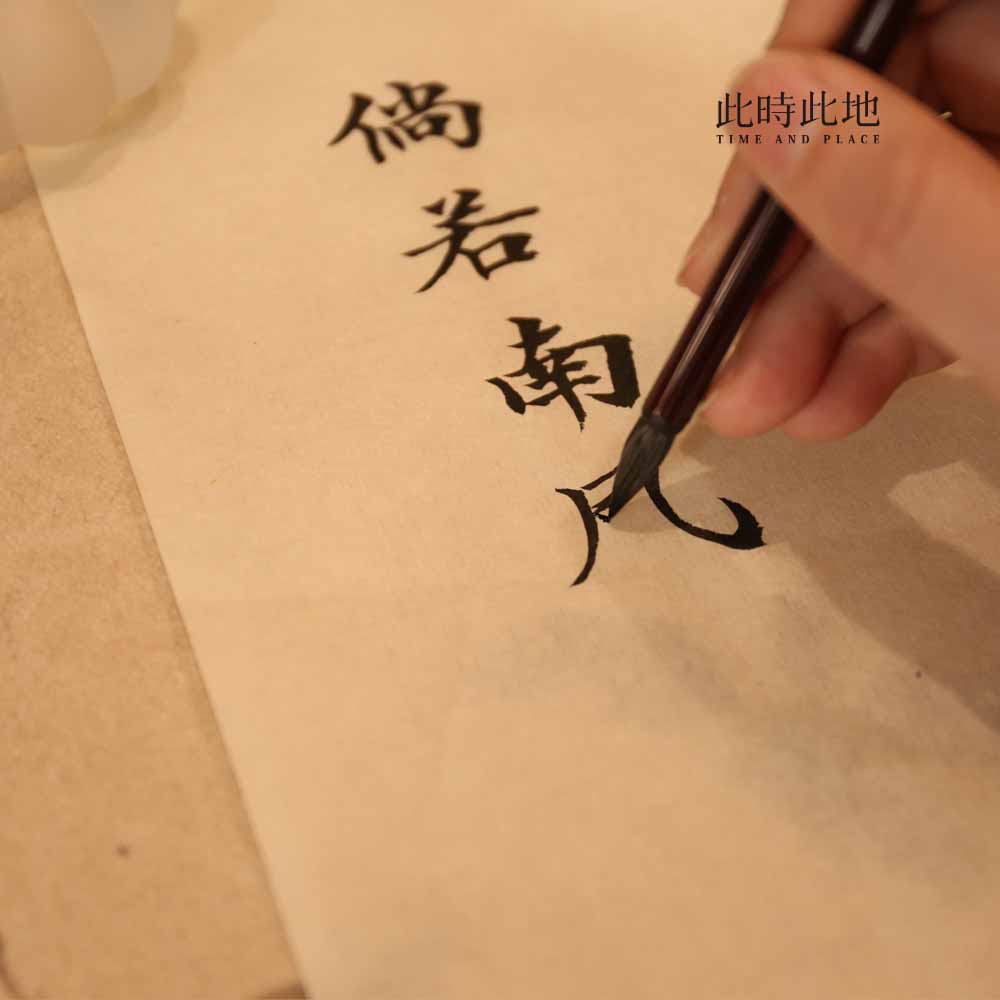 倘若南风
此時此地
TIME AND PLACE